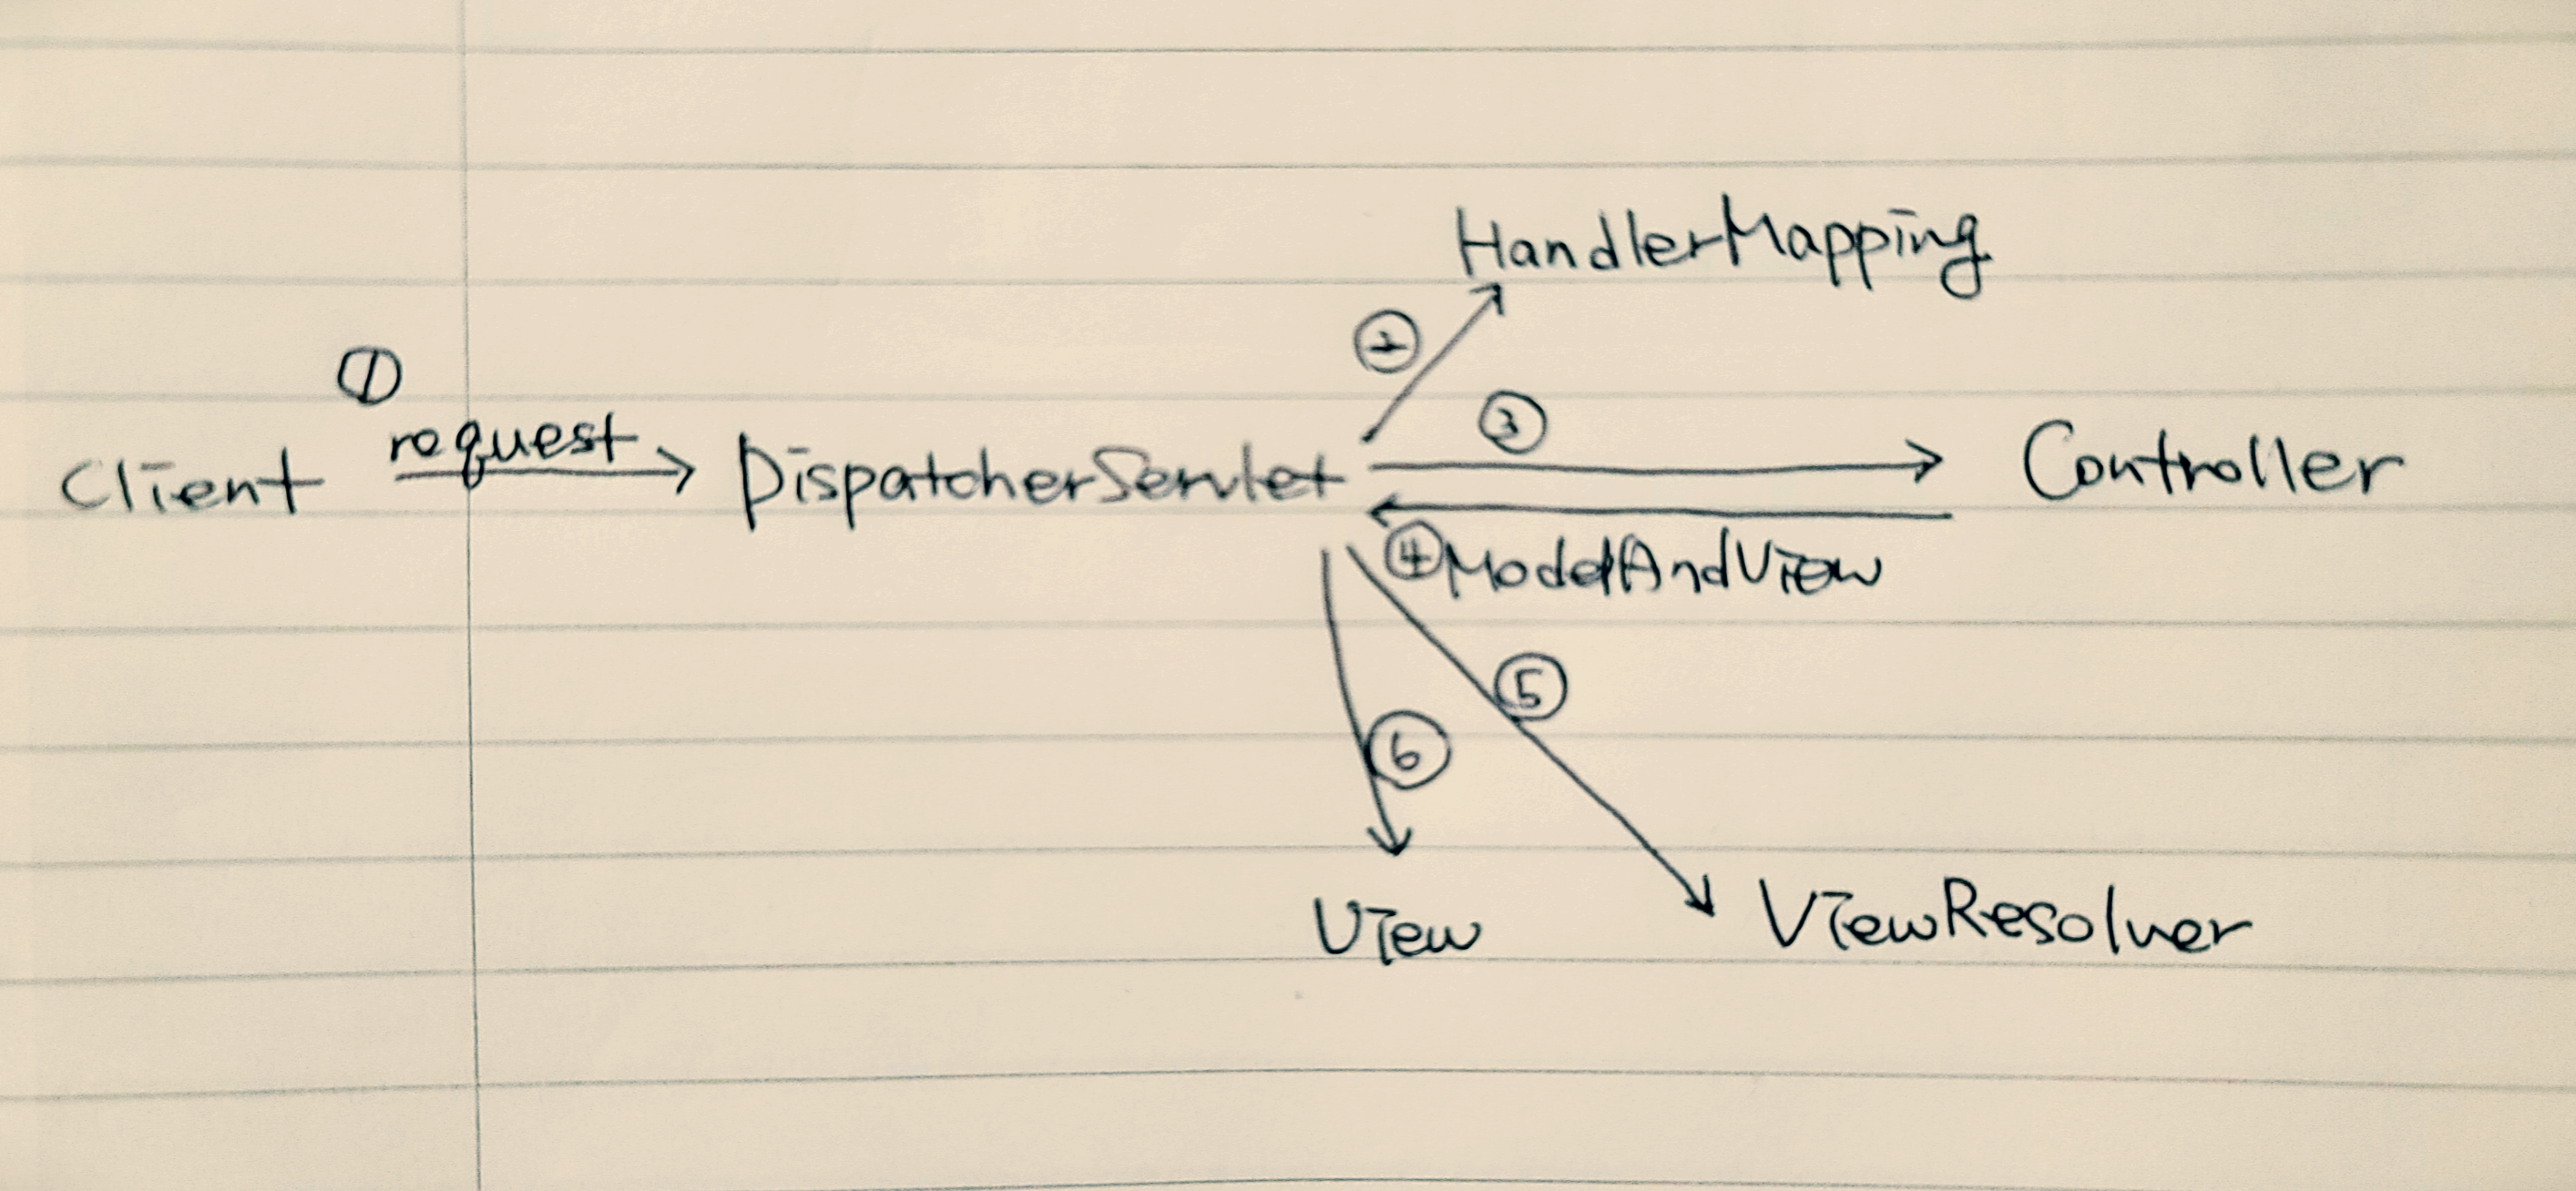 HandlerMapping
②
①
③
request
Client DispatcherServlet Controller
④ModelAndView
⑤
⑥
View ViewResolver